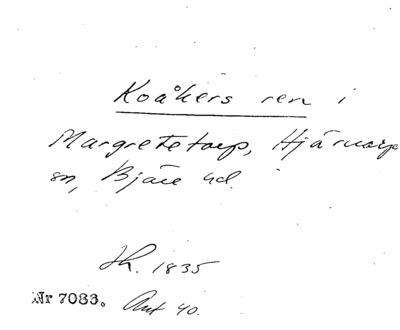 Koåkers ren i
Margretetorp, Hjärnarp
sn, Bjäre hd.
Sk. 1835
Nr 7083. Ant 40.